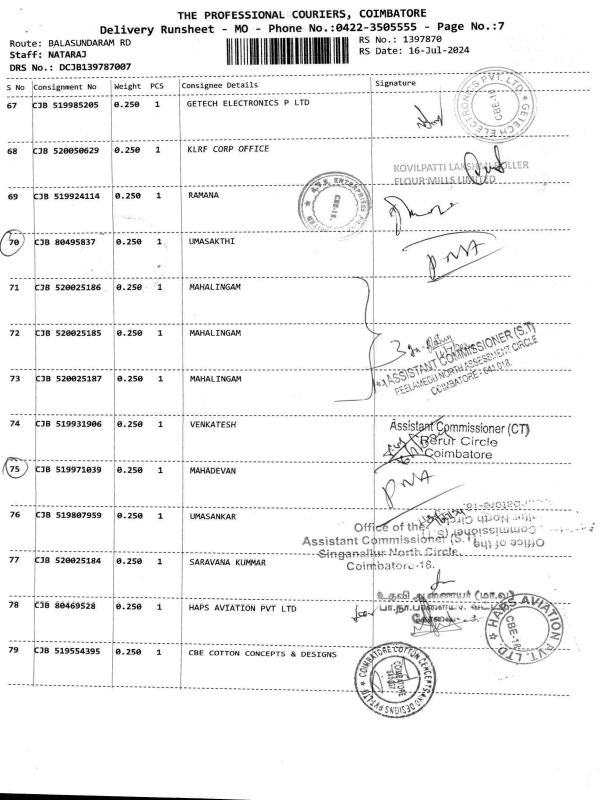 THE PROFESSIONAL COURIERS, COIMBATORE
Delivery Runsheet - MO - Phone No.:0422-3505555 - Page No.:7
Route: BALASUNDARAM RD
RS No.: 1397870
Staff: NATARAJ
RS Date: 16-Jul-2024
DRS No.: DCJB139787007
S No Consignment No Weight PCS Consignee Details Signature
67 CJB 519985205 0.250 1 GETECH ELECTRONICS P LTD
GETECH ELECTRONICS PVT. LTD. CBE-18
68 CJB 520050629 0.250 1 KLRF CORP OFFICE
KOVILPATTI LAKSHMI ROLLER
FLOUR MILLS LIMITED
69 CJB 519924114 0.250 1 RAMANA
ENTERPRISES CBE-18.
70 CJB 80495837 0.250 1 UMASAKTHI
71 CJB 520025186 0.250 1 MAHALINGAM
72 CJB 520025185 0.250 1 MAHALINGAM
ASSISTANT COMMISSIONER (S.T)
PEELAMEDU NORTH ASSESSMENT CIRCLE
COIMBATORE - 641 018.
73 CJB 520025187 0.250 1 MAHALINGAM
74 CJB 519931906 0.250 1 VENKATESH
Assistant Commissioner (CT)
Perur Circle
Coimbatore
75 CJB 519971039 0.250 1 MAHADEVAN
76 CJB 519807959 0.250 1 UMASANKAR
Office of the
Assistant Commissioner (S.T)
Singanallur North Circle
Coimbatore-18.
77 CJB 520025184 0.250 1 SARAVANA KUMMAR
உதவி ஆணையர் (மா.வ)
78 CJB 80469528 0.250 1 HAPS AVIATION PVT LTD
HAPS AVIATION PVT. LTD. CBE-18
79 CJB 519554395 0.250 1 CBE COTTON CONCEPTS & DESIGNS
COIMBATORE COTTON CONCEPTS AND DESIGNS PVT LTD COIMBATORE